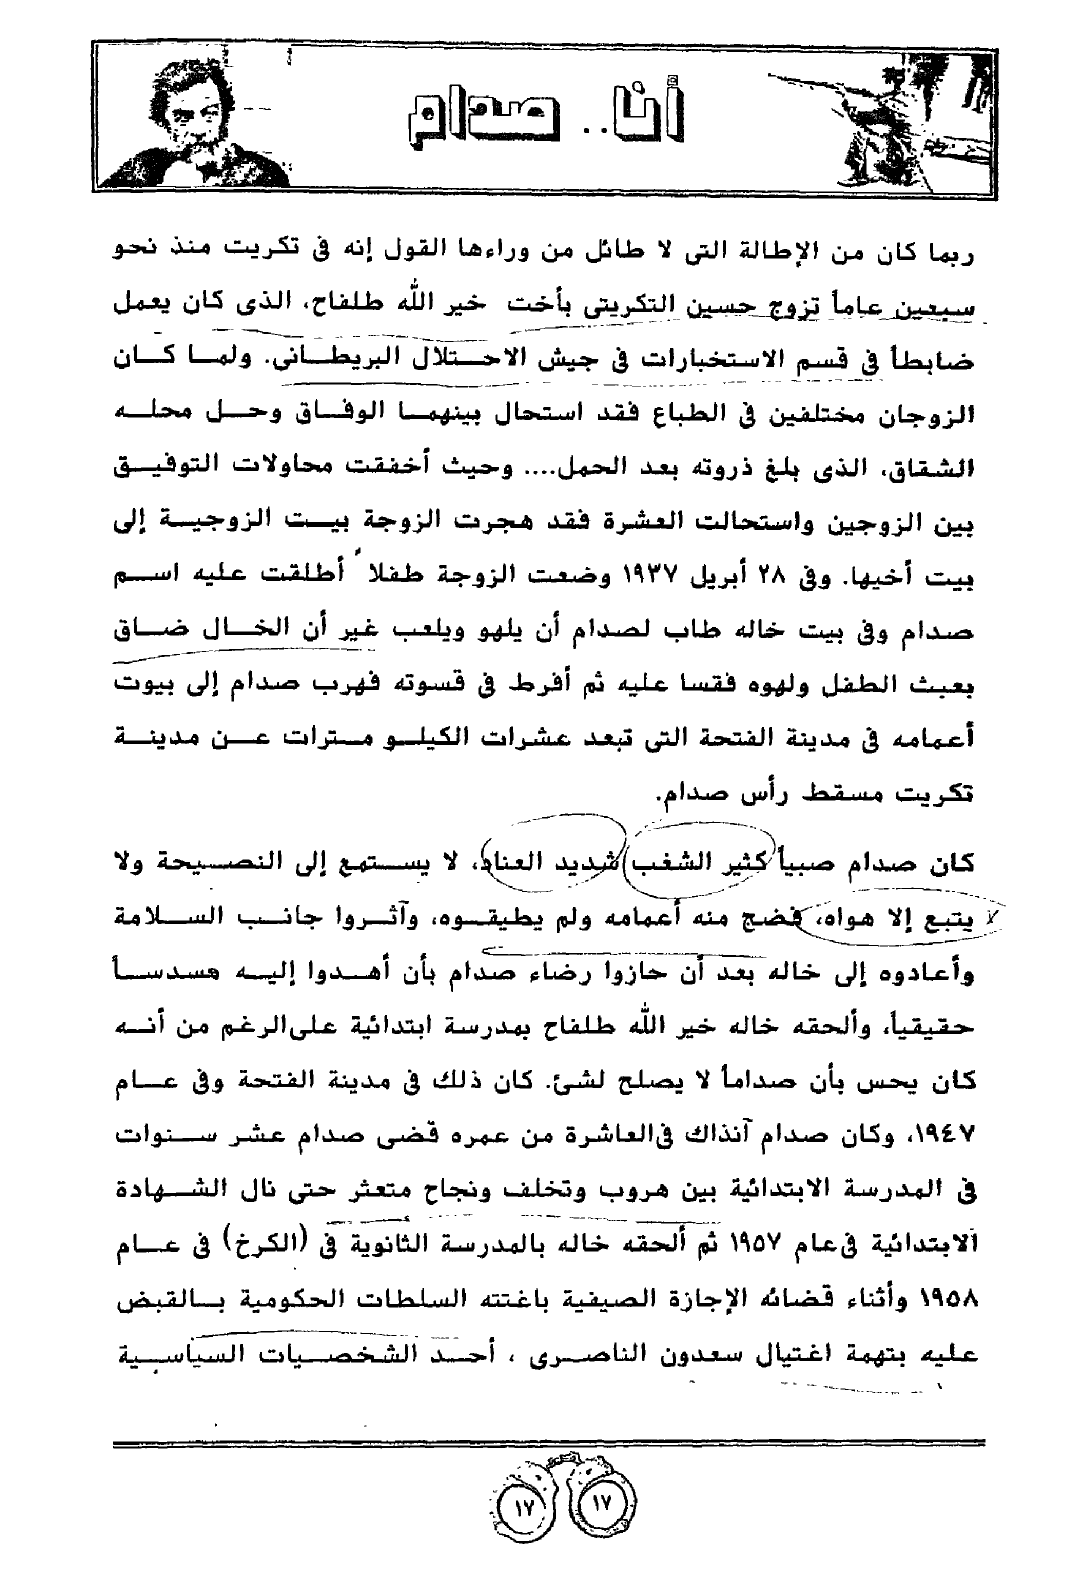 أنا.. صدام
ربما كان من الإطالة التى لا طائل من وراءها القول إنه فى تكريت منذ نحو
سبعين عاماً تزوج حسين التكريتى بأخت خير الله طلفاح، الذى كان يعمل
ضابطاً فى قسم الاستخبارات فى جيش الاحتلال البريطانى. ولما كان
الزوجان مختلفين فى الطباع فقد استحال بينهما الوفاق وحل محله
الشقاق، الذى بلغ ذروته بعد الحمل.... وحيث أخفقت محاولات التوفيق
بين الزوجين واستحالت العشرة فقد هجرت الزوجة بيت الزوجية إلى
بيت أخيها. وفى ٢٨ أبريل ١٩٣٧ وضعت الزوجة طفلاً أطلقت عليه اسم
صدام وفى بيت خاله طاب لصدام أن يلهو ويلعب غير أن الخال ضاق
بعبث الطفل ولهوه فقسا عليه ثم أفرط فى قسوته فهرب صدام إلى بيوت
أعمامه فى مدينة الفتحة التى تبعد عشرات الكيلو مترات عن مدينة
تكريت مسقط رأس صدام.
كان صدام صبياً كثير الشغب شديد العناد، لا يستمع إلى النصيحة ولا
يتبع إلا هواه، فضج منه أعمامه ولم يطيقوه، وآثروا جانب السلامة
وأعادوه إلى خاله بعد أن حازوا رضاء صدام بأن أهدوا إليه مسدسا
حقيقياً، وألحقه خاله خير الله طلفاح بمدرسة ابتدائية على الرغم من أنه
كان يحس بأن صداماً لا يصلح لشئ. كان ذلك فى مدينة الفتحة وفى عام
١٩٤٧، وكان صدام آنذاك فى العاشرة من عمره قضى صدام عشر سنوات
فى المدرسة الابتدائية بين هروب وتخلف ونجاح متعثر حتى نال الشهادة
الابتدائية فى عام ١٩٥٧ ثم ألحقه خاله بالمدرسة الثانوية فى (الكرخ) فى عام
١٩٥٨ وأثناء قضائه الإجازة الصيفية باغتته السلطات الحكومية بالقبض
عليه بتهمة اغتيال سعدون الناصرى ، أحد الشخصيات السياسية
١٧ ١٧